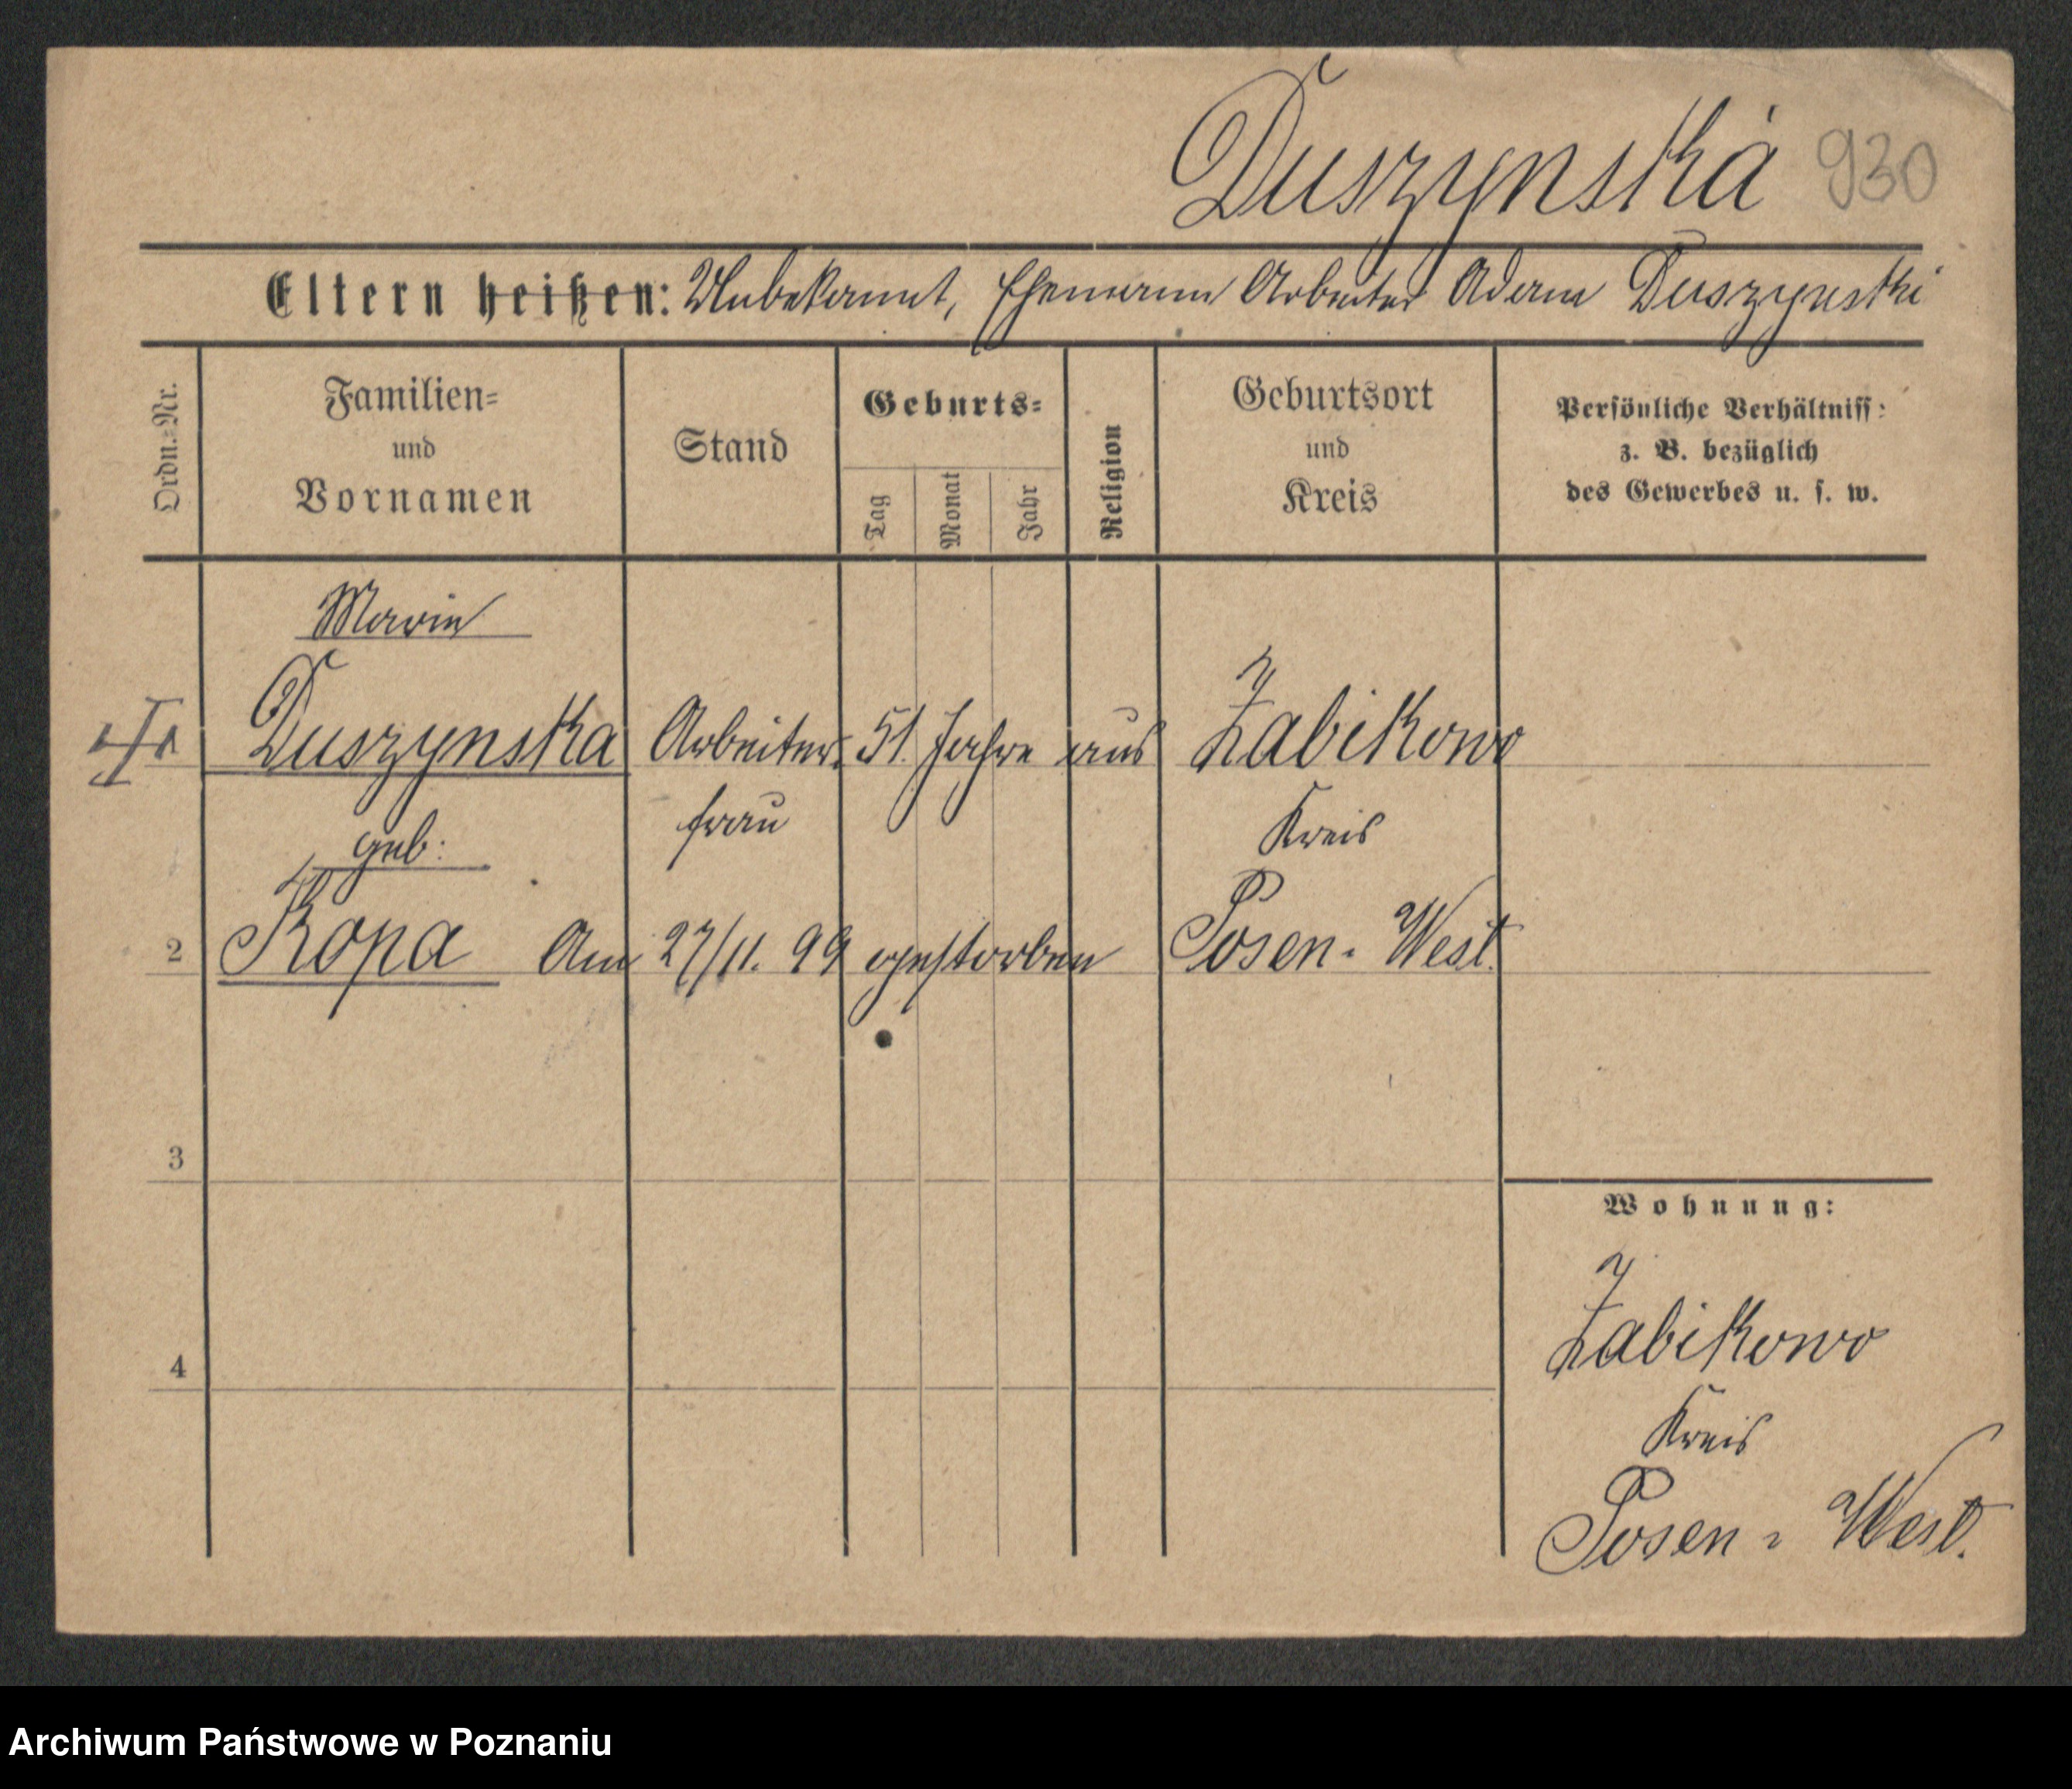 Duszynska 930
Eltern heißen: Unbekannt, Ehemann Arbeiter Adam Duszynski
Ordn.-Nr.
Familien-
und
Vornamen
Stand
Geburts-
Tag
Monat
Jahr
Religion
Geburtsort
und
Kreis
Persönliche Verhältniss:
z. B. bezüglich
des Gewerbes u. s. w.
Marie
Duszynska Arbeiter- 51 Jahre aus Żabikowo
frau Kreis
geb:
2 Kopa Am 27/11. 99 gestorben Posen-West.
3
Wohnung:
Żabikowo
4
Kreis
Posen-West.
Archiwum Państwowe w Poznaniu